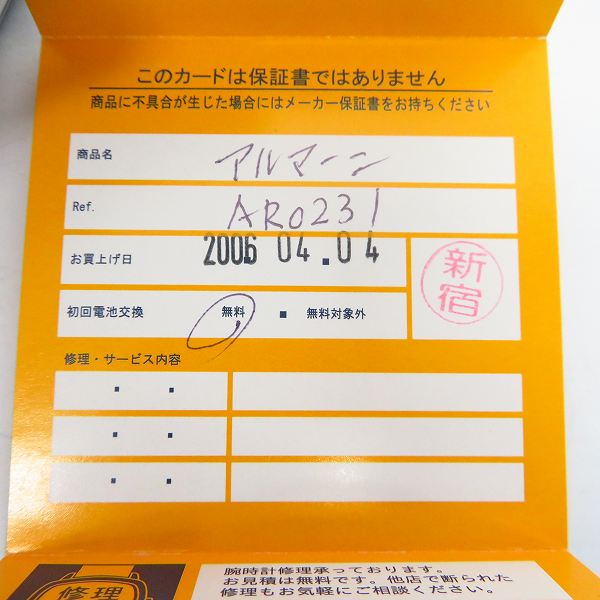 このカードは保証書ではありません
商品に不具合が生じた場合にはメーカー保証書をお持ちください
商品名 アルマーニ
Ref. AR0231
お買上げ日 2006.04.04
新宿
初回電池交換 無料 ・ 無料対象外
修理・サービス内容
・ ・
・ ・
・ ・
修理
腕時計修理承っております。
お見積は無料です。他店で断られた
修理もお気軽にご相談ください。